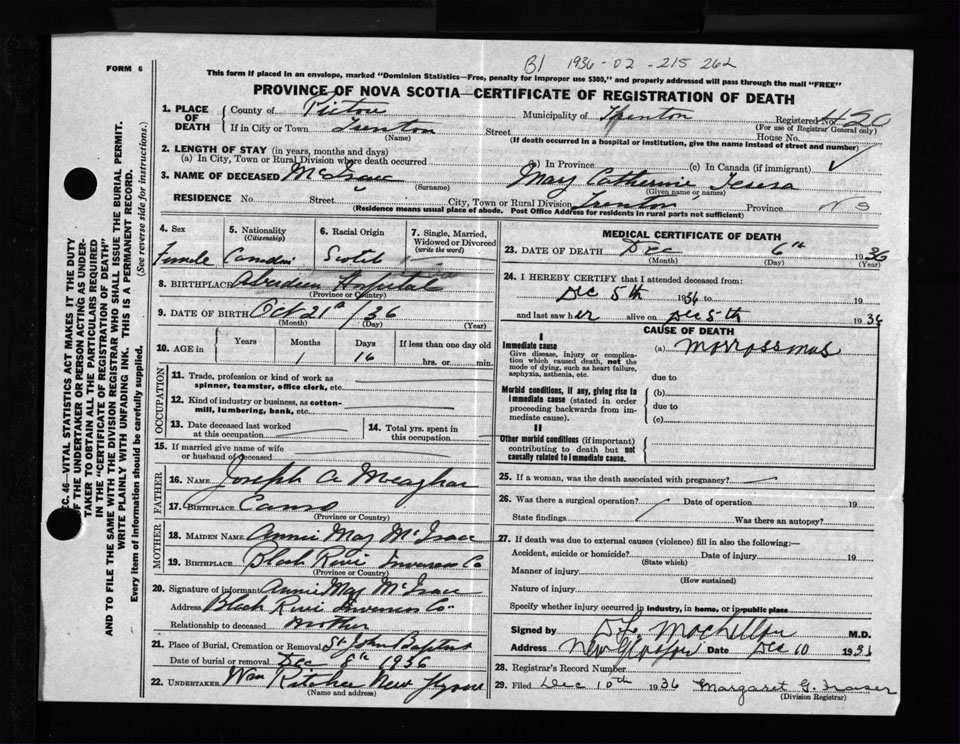 B1 1936-02-215 262
FORM 6
This form if placed in an envelope, marked "Dominion Statistics—Free, penalty for improper use $300," and properly addressed will pass through the mail "FREE"
PROVINCE OF NOVA SCOTIA—CERTIFICATE OF REGISTRATION OF DEATH
1. PLACE OF DEATH
County of Pictou Municipality of Trenton Registered No. 420
(For use of Registrar General only)
If in City or Town Trenton Street House No.
(Name) (If death occurred in a hospital or institution, give the name instead of street and number)
2. LENGTH OF STAY (in years, months and days)
(a) In City, Town or Rural Division where death occurred (b) In Province (c) In Canada (if immigrant)
3. NAME OF DECEASED McIsaac Mary Catherine Teresa
(Surname) (Given name or names)
RESIDENCE No. Street City, Town or Rural Division Trenton Province N S
(Residence means usual place of abode. Post Office Address for residents in rural parts not sufficient)
4. Sex 5. Nationality (Citizenship) 6. Racial Origin 7. Single, Married, Widowed or Divorced (write the word)
Female Scotch
8. BIRTHPLACE Aberdeen Hospital
(Province or Country)
9. DATE OF BIRTH Oct 21st /36
(Month) (Day) (Year)
10. AGE in Years Months Days If less than one day old
1 16 hrs. or min.
OCCUPATION
11. Trade, profession or kind of work as spinner, teamster, office clerk, etc.
12. Kind of industry or business, as cotton-mill, lumbering, bank, etc.
13. Date deceased last worked at this occupation
14. Total yrs. spent in this occupation
15. If married give name of wife or husband of deceased
FATHER
16. NAME Joseph A Meaghar
17. BIRTHPLACE Canso
(Province or Country)
MOTHER
18. MAIDEN NAME Annie May McIsaac
19. BIRTHPLACE Black River Inverness Co
(Province or Country)
20. Signature of informant Annie May McIsaac
Address Black River Inverness Co.
Relationship to deceased Mother
21. Place of Burial, Cremation or Removal St John Baptist
Date of burial or removal Dec 8th 1936
22. UNDERTAKER Wm Ritchie New
(Name and address)
MEDICAL CERTIFICATE OF DEATH
23. DATE OF DEATH Dec 6th 1936
(Month) (Day) (Year)
24. I HEREBY CERTIFY that I attended deceased from:
Dec 5th 1936 to 19
and last saw her alive on Dec 5th 1936
CAUSE OF DEATH
I
Immediate cause
Give disease, injury or complication which caused death, not the mode of dying, such as heart failure, asphyxia, asthenia, etc.
(a)
due to
Morbid conditions, if any, giving rise to immediate cause (stated in order proceeding backwards from immediate cause.
(b)
due to
(c)
II
Other morbid conditions (if important) contributing to death but not causally related to immediate cause.
25. If a woman, was the death associated with pregnancy?
26. Was there a surgical operation? Date of operation 19
State findings Was there an autopsy?
27. If death was due to external causes (violence) fill in also the following:
Accident, suicide or homicide? Date of injury 19
(State which)
Manner of injury
(How sustained)
Nature of injury
Specify whether injury occurred in industry, in home, or in public place
Signed by M.D.
Address New Glasgow Date Dec 10 1936
28. Registrar's Record Number
29. Filed Dec 10th 1936 Margaret G. Fraser
(Division Registrar)
SEC. 46—VITAL STATISTICS ACT MAKES IT THE DUTY
OF THE UNDERTAKER OR PERSON ACTING AS UNDER-
TAKER TO OBTAIN ALL THE PARTICULARS REQUIRED
IN THE "CERTIFICATE OF REGISTRATION OF DEATH"
AND TO FILE THE SAME WITH THE DIVISION REGISTRAR WHO SHALL ISSUE THE BURIAL PERMIT.
WRITE PLAINLY WITH UNFADING INK. THIS IS A PERMANENT RECORD.
Every item of information should be carefully supplied. (See reverse side for instructions.)